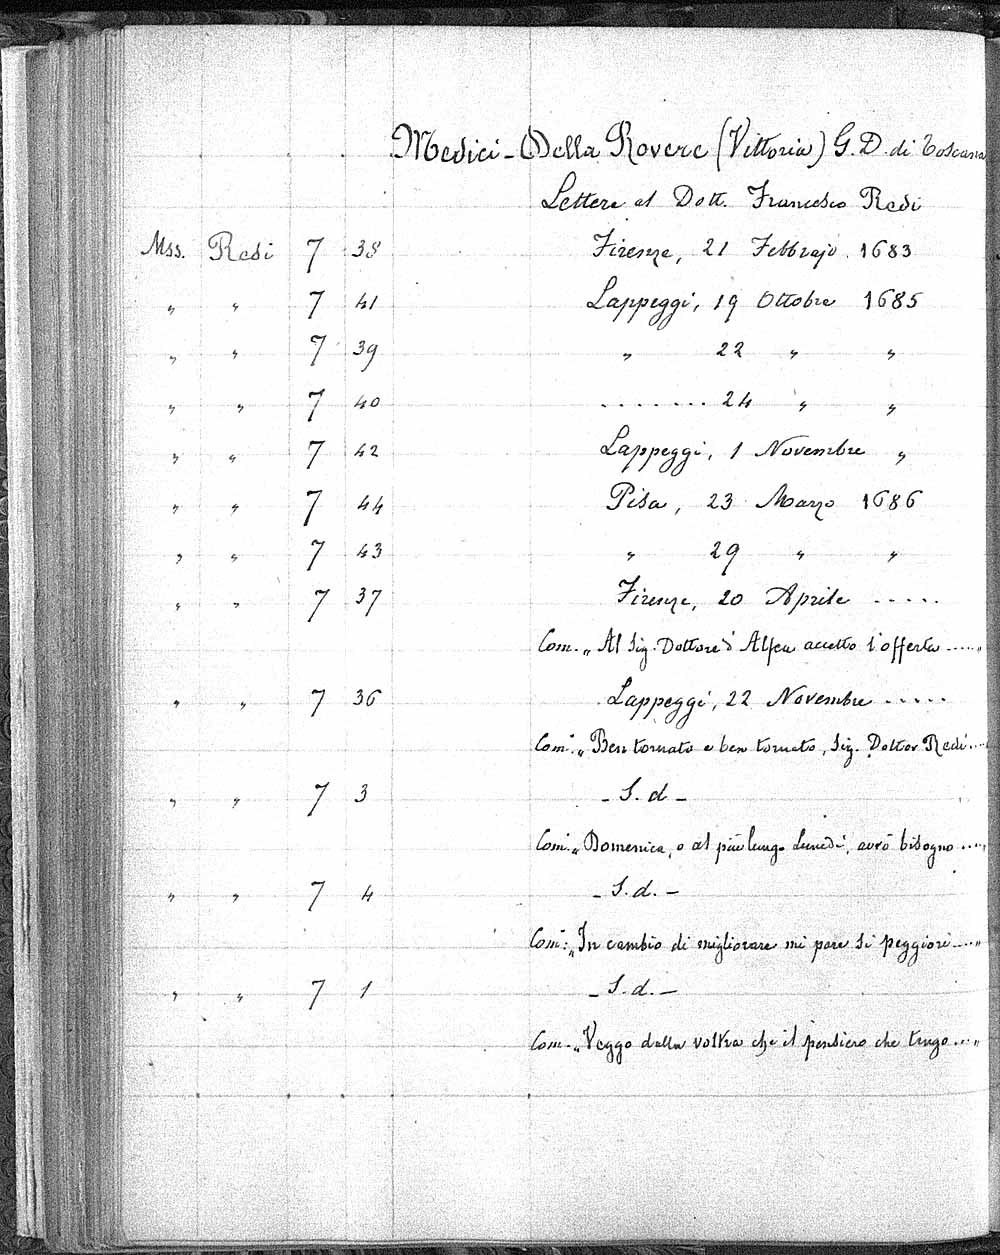 Medici-Della Rovere (Vittoria) G. D. di Toscana
Lettere al Dott. Francesco Redi
Mss. Redi 7 38 Firenze, 21 Febbrajo 1683
„ „ 7 41 Lappeggi, 19 Ottobre 1685
„ „ 7 39 „ 22 „ „
„ „ 7 40 ........ 24 „ „
„ „ 7 42 Lappeggi, 1 Novembre „
„ „ 7 44 Pisa, 23 Marzo 1686
„ „ 7 43 „ 29 „ „
„ „ 7 37 Firenze, 20 Aprile .....
Com. „Al Sig. Dottore d' accetto l'offerta ....."
„ „ 7 36 Lappeggi, 22 Novembre .....
Com. „Ben tornato e ben tornato, Sig. Dottor Redi ....
„ „ 7 3 - S. d -
Com. „Domenica, o al più lungo Lunedì, avrò bisogno ....."
„ „ 7 4 - S. d. -
Com: „In cambio di migliorare mi pare si peggiori ....."
„ „ 7 1 - S. d. -
Com. „Veggo dalla vostra che il pensiero che tengo ...."